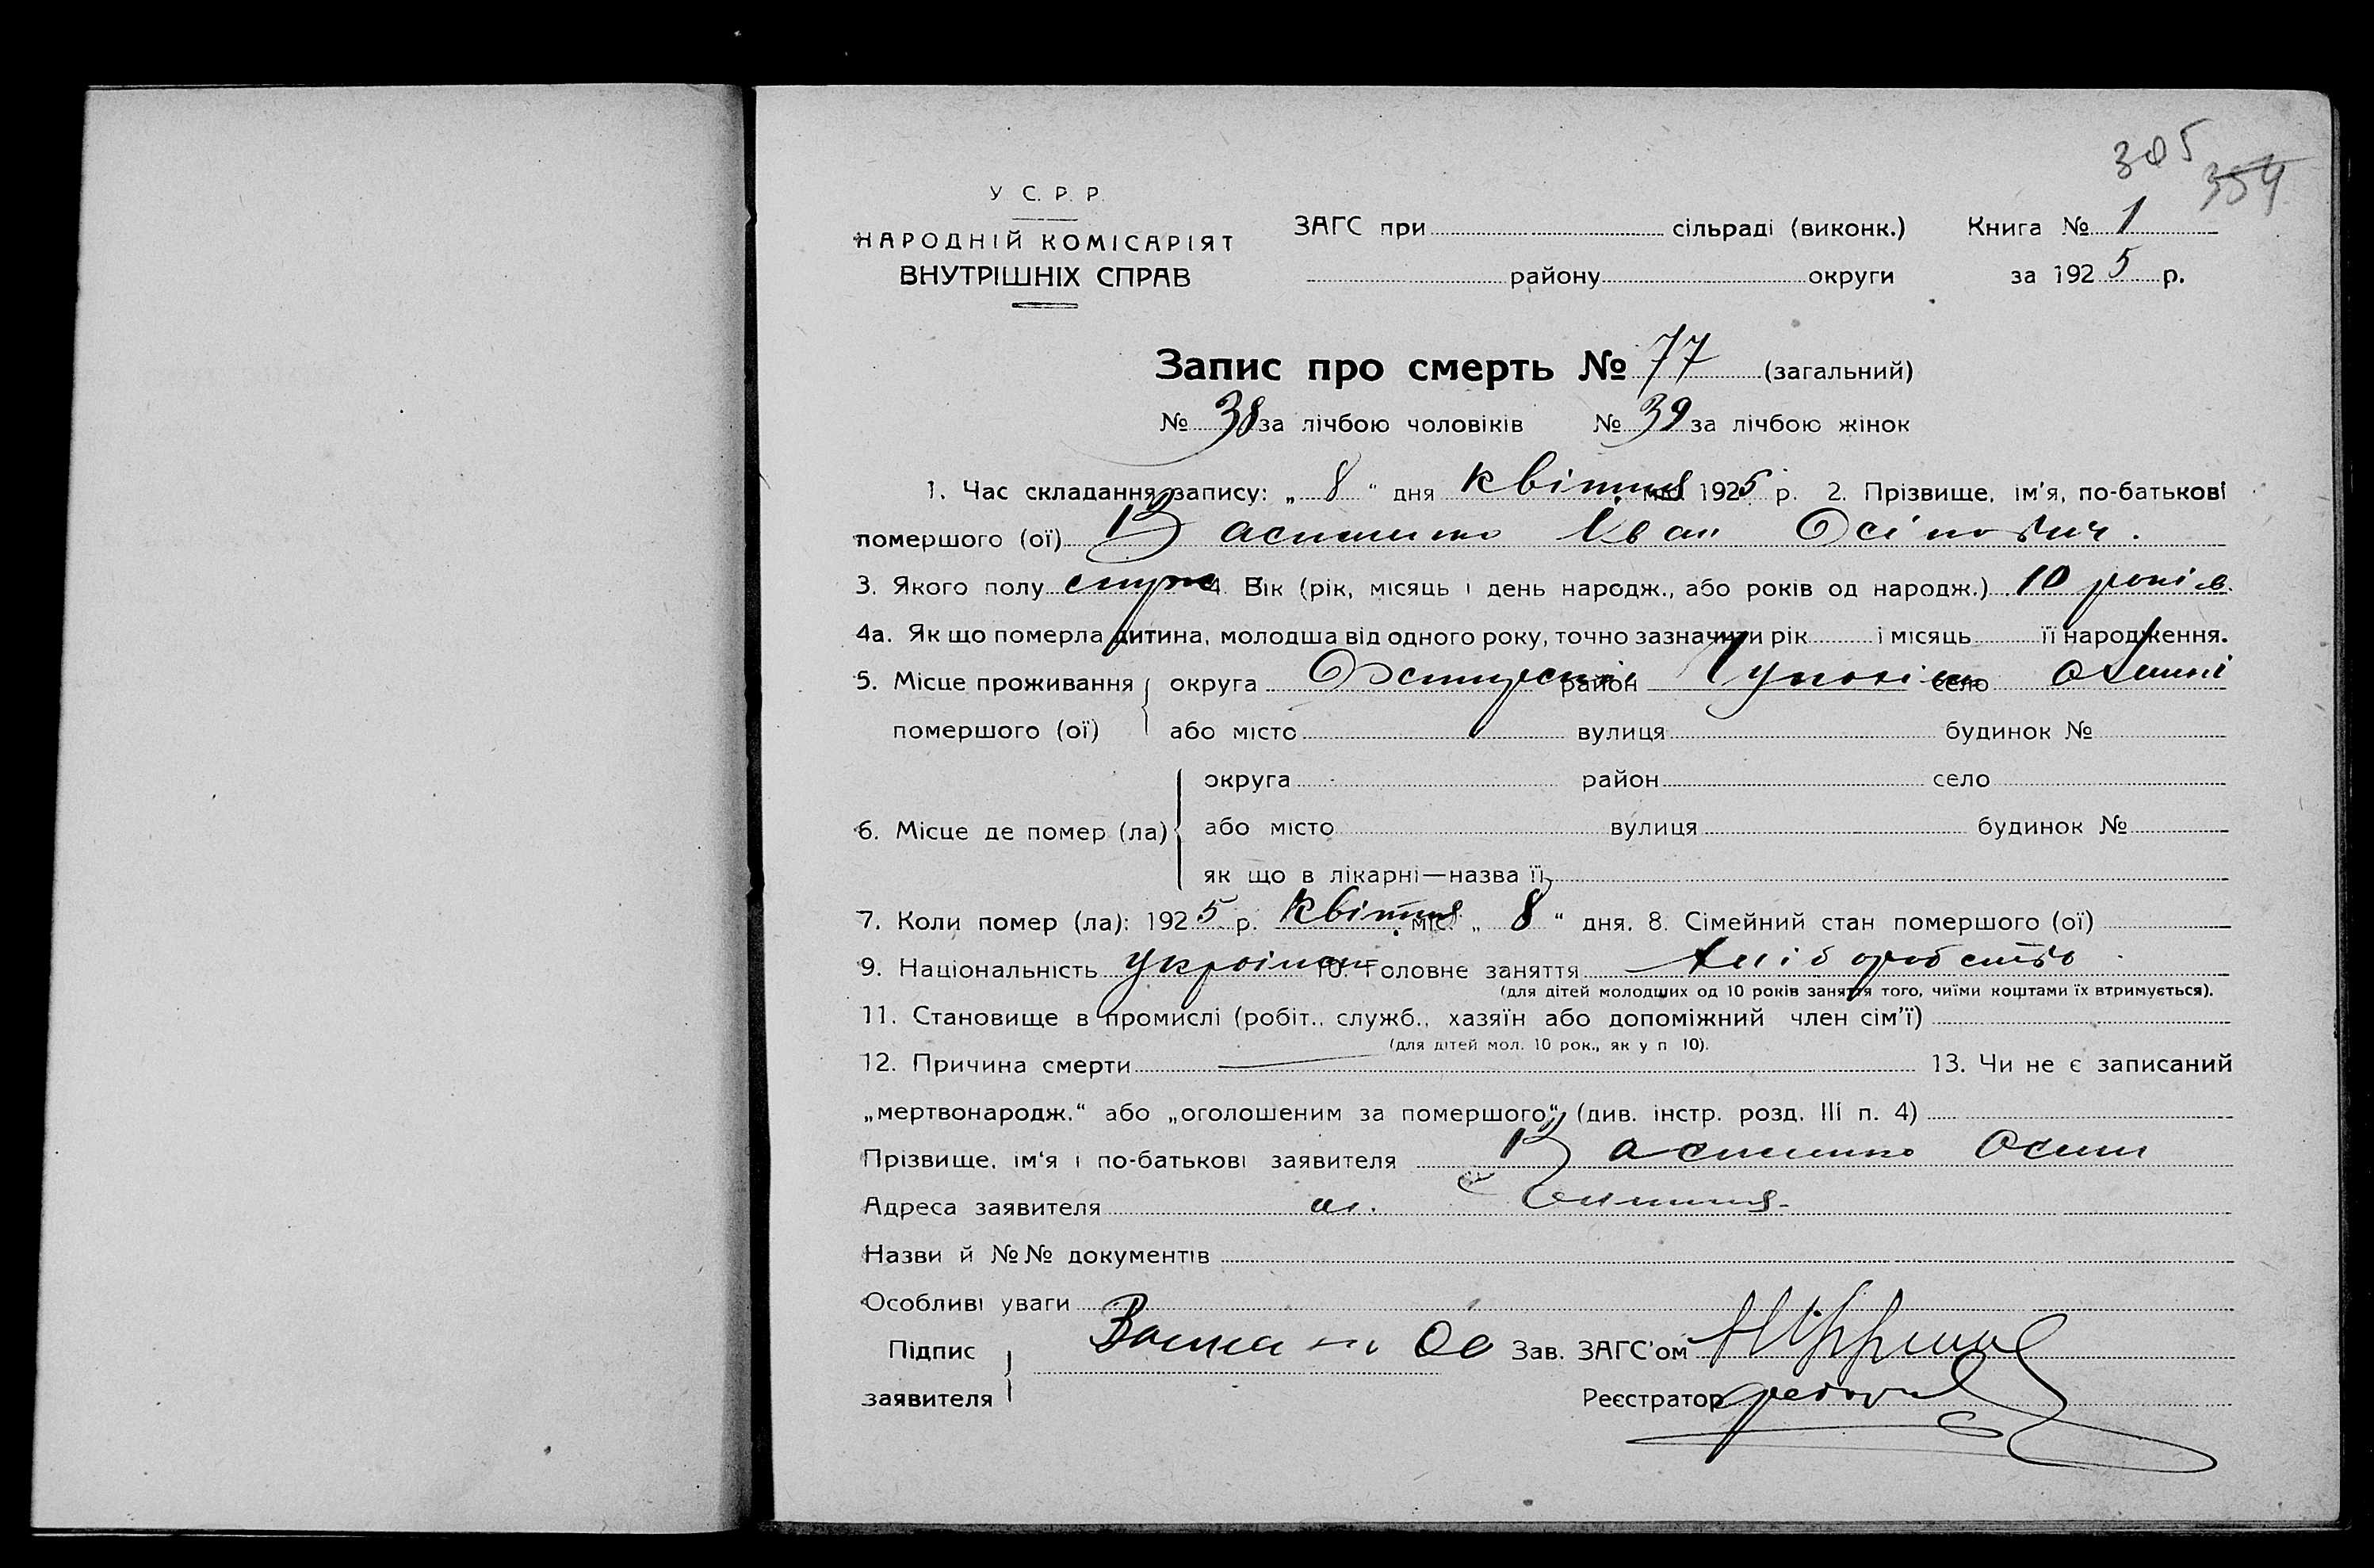 305
354
У С. Р. Р.
НАРОДНІЙ КОМІСАРІЯТ
ВНУТРІШНІХ СПРАВ
ЗАГС при сільраді (виконк.)
району округи
Книга № 1
за 1925 р.
Запис про смерть № 77 (загальний)
№ 38 за лічбою чоловіків № 39 за лічбою жінок
1. Час складання запису: „ 8 “ дня квітня міс. 1925 р. 2. Прізвище, ім’я, по-батькові
помершого (ої) Іван Осіпович.
3. Якого полу 4. Вік (рік, місяць і день народж., або років од народж.) 10 років.
4а. Як що померла дитина, молодша від одного року, точно зазначити рік і місяць її народження.
5. Місце проживання округа район село
помершого (ої) або місто вулиця будинок №
округа район село
6. Місце де помер (ла) або місто вулиця будинок №
як що в лікарні—назва її
7. Коли помер (ла): 1925 р. квітня міс. „ 8 “ дня. 8. Сімейний стан помершого (ої)
9. Національність 10. Головне заняття хліборобство
(для дітей молодших од 10 років заняття того, чиїми коштами їх втримується).
11. Становище в промислі (робіт., служб., хазяїн або допоміжний член сім’ї)
(для дітей мол. 10 рок., як у п 10).
12. Причина смерти — 13. Чи не є записаний
„мертвонародж.“ або „оголошеним за помершого“ (див. інстр. розд. III п. 4)
Прізвище, ім‘я і по-батькові заявителя Осип
Адреса заявителя
Назви й №№ документів
Особливі уваги
Підпис Ос Зав. ЗАГС’ом
заявителя Реєстратор